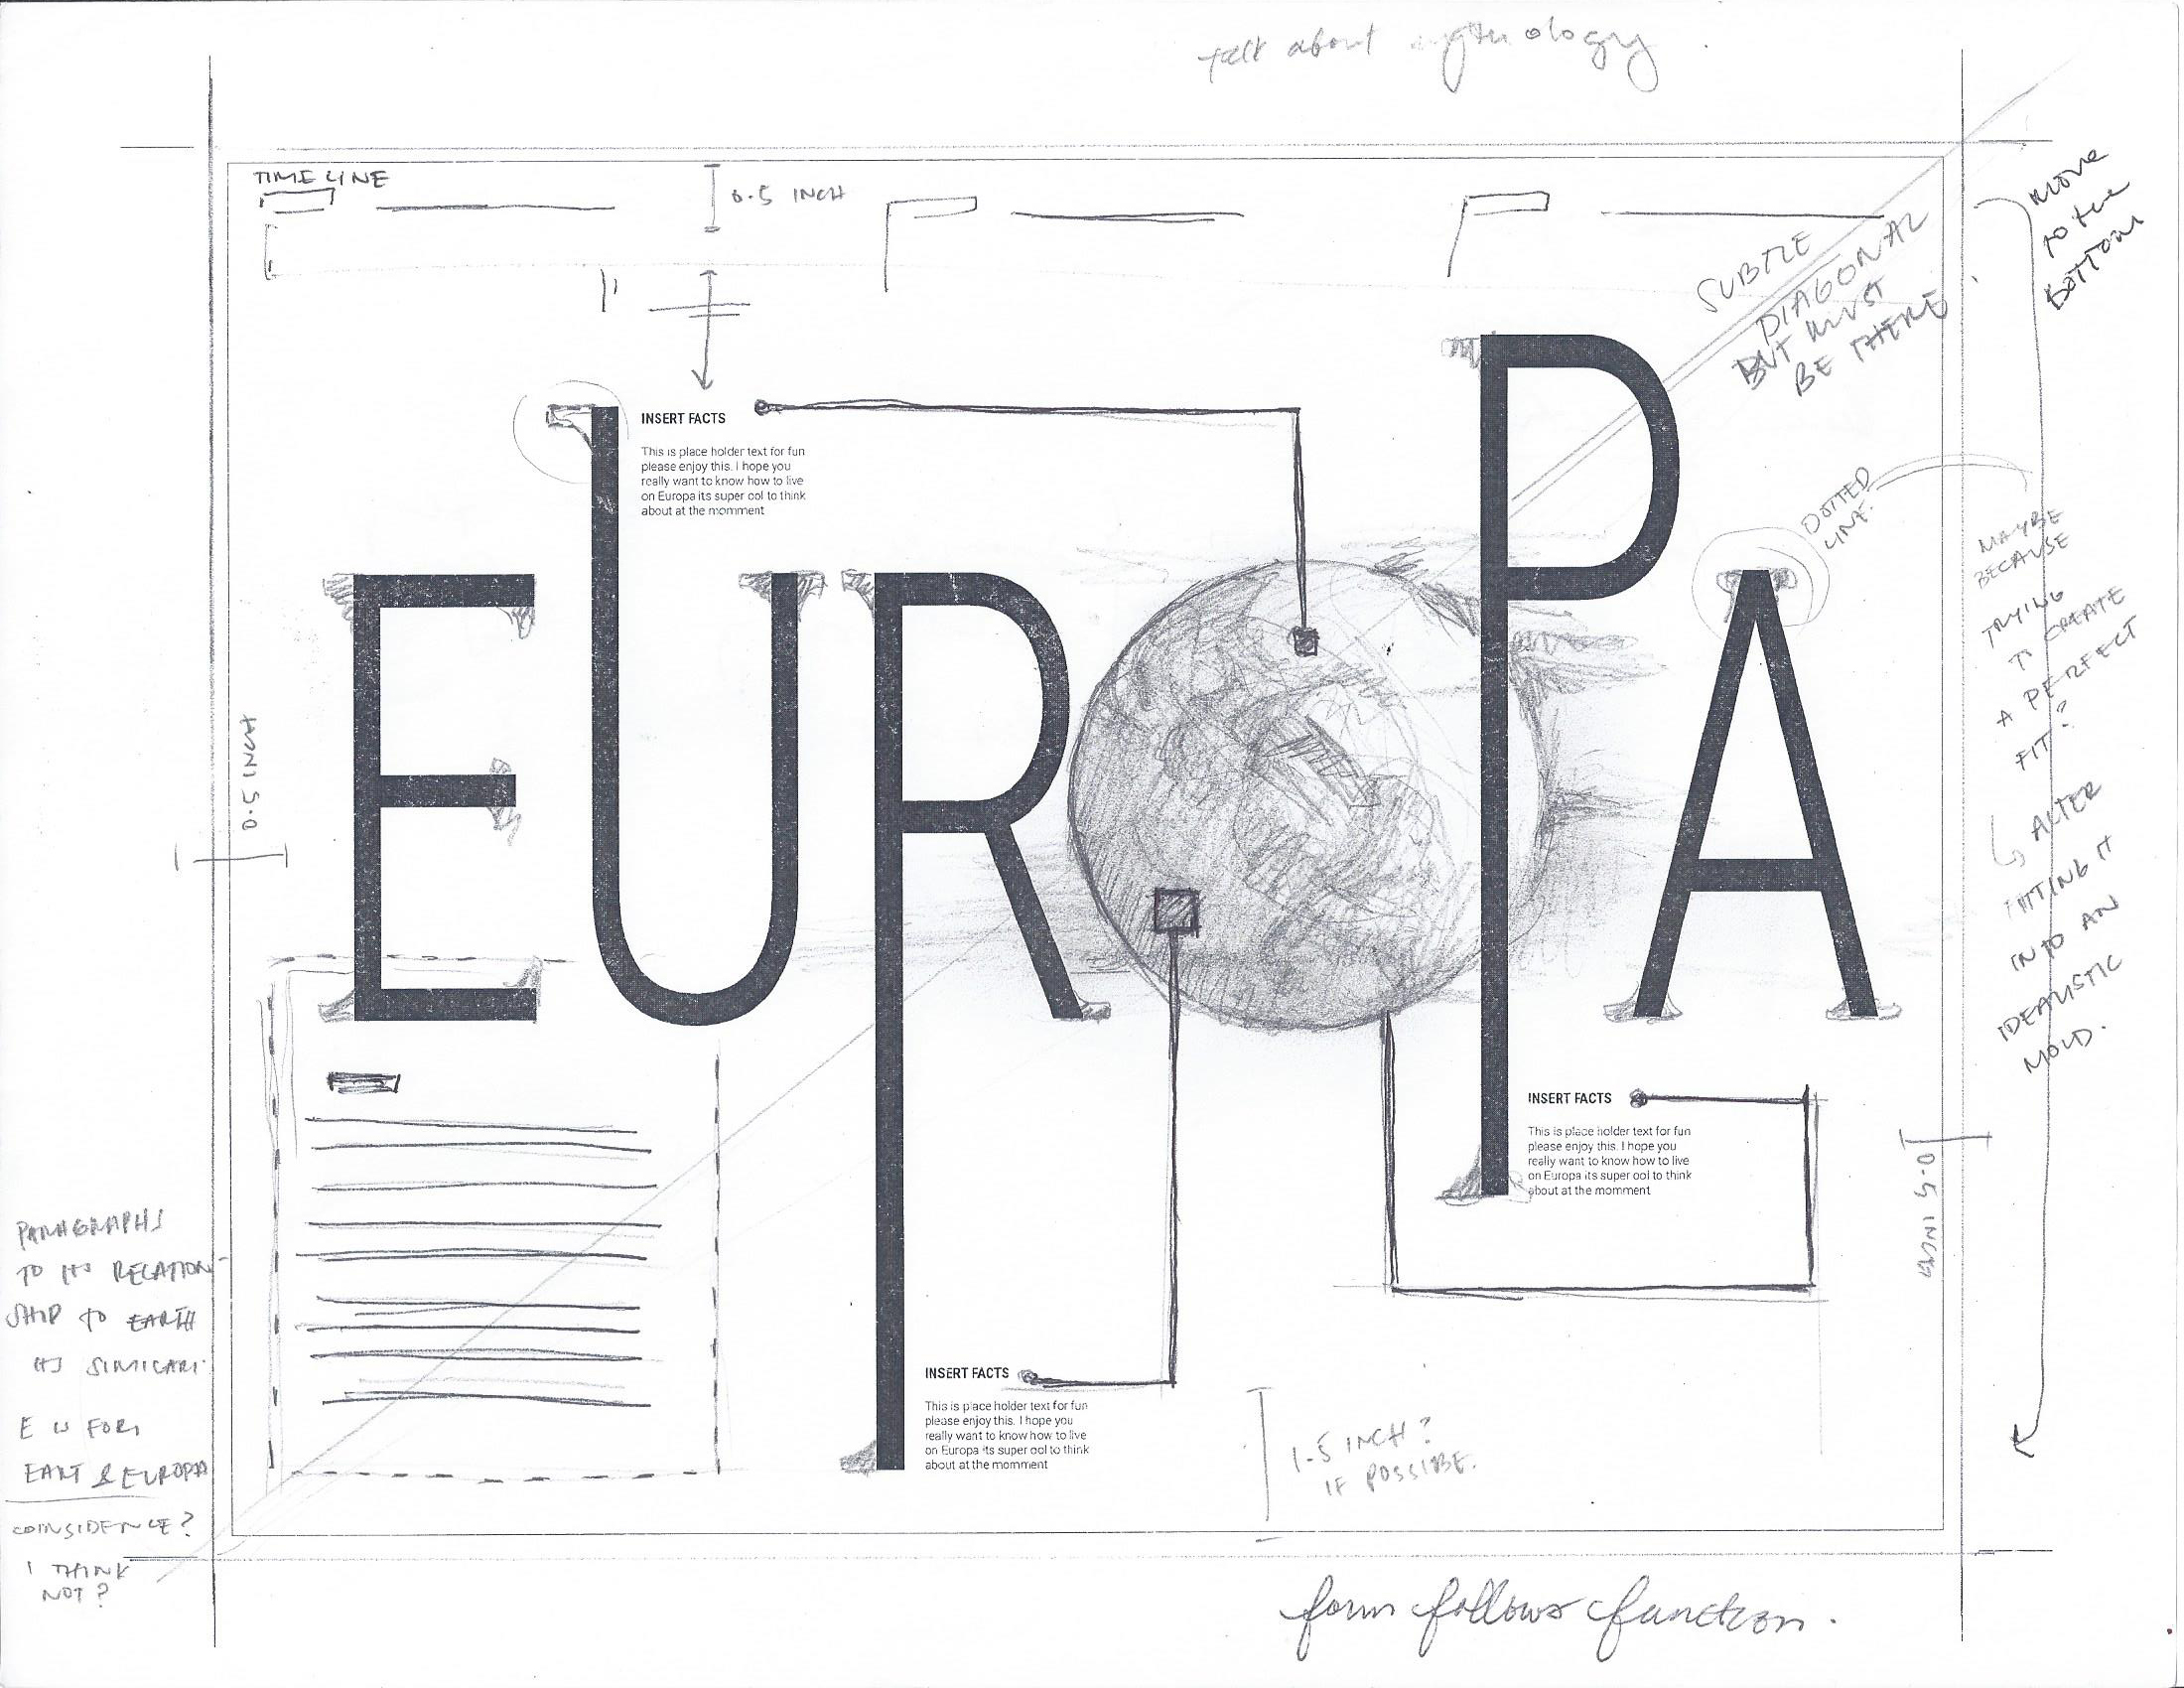 talk about mythology
TIMELINE
0.5 INCH
MOVE
TO THE
BOTTOM
SUBTLE
DIAGONAL
BUT MUST
BE THERE
EUROPA
INSERT FACTS
This is place holder text for fun
please enjoy this. I hope you
really want to know how to live
on Europa its super ool to think
about at the momment
DOTTED
LINE.
MAYBE
BECAUSE
TRYING
TO CREATE
A PERFECT
FIT?
ALTER
FITTING IT
INTO AN
IDEALISTIC
MOLD.
0.5 INCH
INSERT FACTS
This is place holder text for fun
please enjoy this. I hope you
really want to know how to live
on Europa its super ool to think
about at the momment
0.5 INCH
PARAGRAPHS
TO ITS RELATION
SHIP TO EARTH
ITS SIMILARI
E IS FOR
EART & EUROPA
COINSIDENCE?
I THINK
NOT?
INSERT FACTS
This is place holder text for fun
please enjoy this. I hope you
really want to know how to live
on Europa its super ool to think
about at the momment
1.5 INCH?
IF POSSIBE.
form follows function.